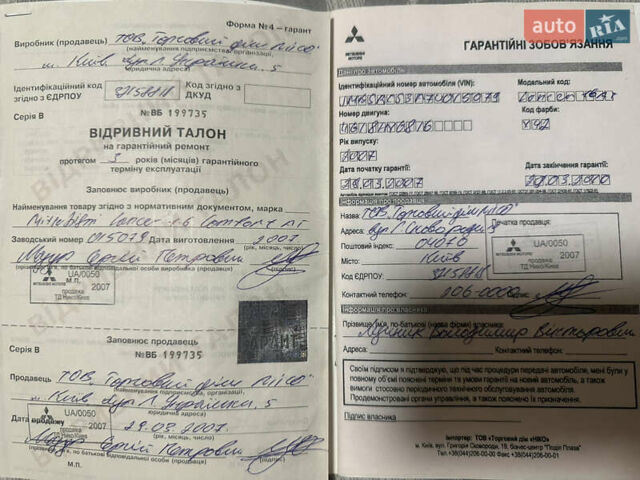 Форма № 4 – гарант
Виробник (продавець) ТОВ "Торговий дім НІКО"
(найменування підприємства, організації,
м. Київ вул Л. Українки, 5
юридична адреса)
Ідентифікаційний код згідно з ЄДРПОУ
Код згідно з ДКУД
Серія В № ВБ 199735
ВІДРИВНИЙ ТАЛОН
на гарантійний ремонт
протягом 3 років (місяців) гарантійного
терміну експлуатації
Заповнює виробник (продавець)
Найменування товару згідно з нормативним документом, марка
Mitsubishi Lancer 1.6 Comfort AT
Заводський номер 015079 Дата виготовлення 2007
(рік, місяць, число)
Мазур Сергій Петрович
(прізвище, ім'я, по батькові відповідальної особи виробника) (підпис)
М.П.
UA/0050
2007
продажа
ТД Нико/Киев
Заповнює продавець
Серія В № ВБ 199735
Продавець ТОВ "Торговий дім НІКО"
(найменування підприємства, організації,
м. Київ вул Л. Українки, 5
юридична адреса)
Дата продажу 29.03.2007
(рік, місяць, число)
UA/0050
2007
продажа
ТД Нико/Киев
Мазур Сергій Петрович
(прізвище, ім'я, по батькові відповідальної особи продавця) (підпис)
М.П.
auto RIA
MITSUBISHI MOTORS
ГАРАНТІЙНІ ЗОБОВ'ЯЗАННЯ
Дані про автомобіль
Ідентифікаційний номер автомобіля (VIN):
Модельний код:
Номер двигуна:
Код фарби:
Рік випуску:
2007
Дата початку гарантії:
Дата закінчення гарантії:
29.03.2007
29.03.2010
Інформація про продавця
Назва: ТОВ "Торговий дім НІКО"
Адреса: вул Г. Сковороди
Печатка продавця:
Поштовий індекс: 04070
Місто: Київ
Код ЄДРПОУ:
UA/0050
2007
продажа
ТД Нико/Киев
Контактний телефон: 206-0000 Підпис:
Інформація про власника
Прізвище, ім'я, по-батькові (назва фірми) власника:
Володимир Вікторович
Адреса: Контактний телефон:
Своїм підписом я підтверджую, що під час процедури передачі автомобіля, мені були у
повному об'ємі пояснені терміни та умови гарантії на новий автомобіль, а також
вимоги стосовно періодичного технічного обслуговування автомобіля.
Продемонстровані органи управління, а також пояснено їх призначення.
Підпис власника
Імпортер: ТОВ «Торговий дім «НІКО»
м. Київ, вул. Григорія Сковороди, 19, бізнес-центр "Поділ Плаза"
Тел.+38(044)206-00-00 Факс.+38(044)206-00-01